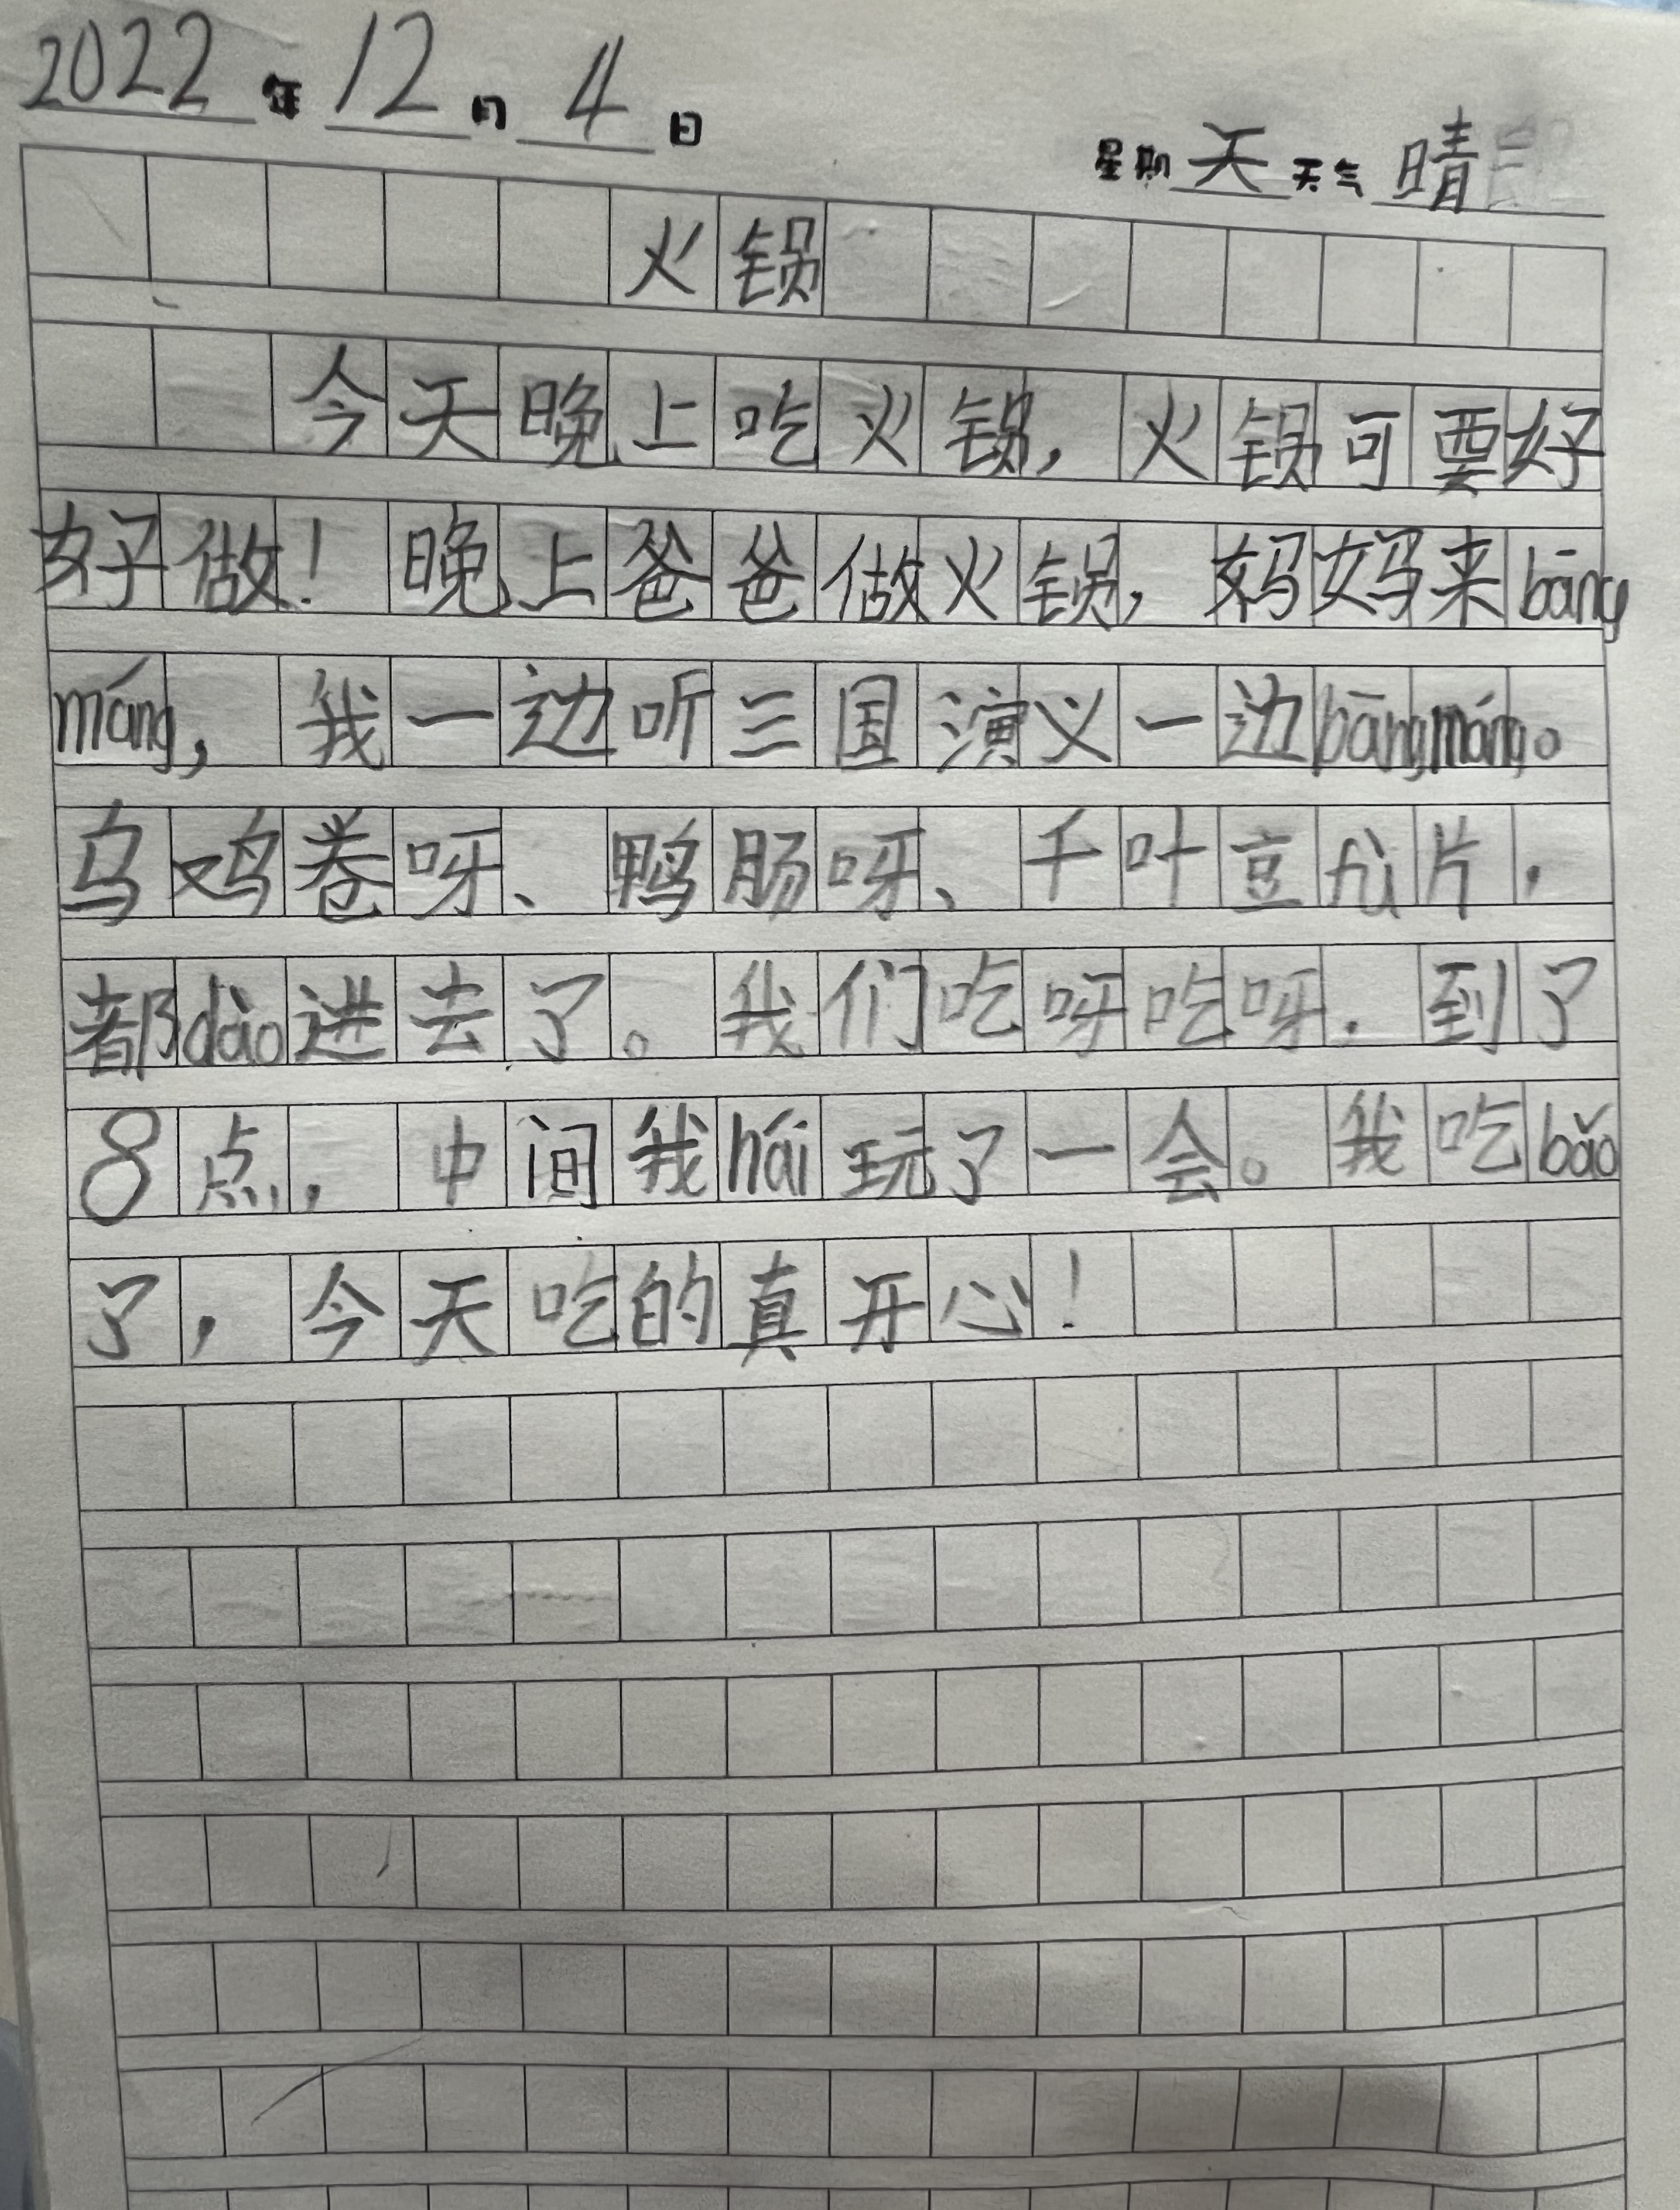 2022年12月4日
星期天天气晴
火锅
今天晚上吃火锅,火锅可要好
好做!晚上爸爸做火锅,妈妈来bāng
máng,我一边听三国演义一边bāngmáng。
乌鸡卷呀、鸭肠呀、千叶豆fǔ片,
都dào进去了。我们吃呀吃呀,到了
8点,中间我hái玩了一会。我吃bǎo
了,今天吃的真开心!